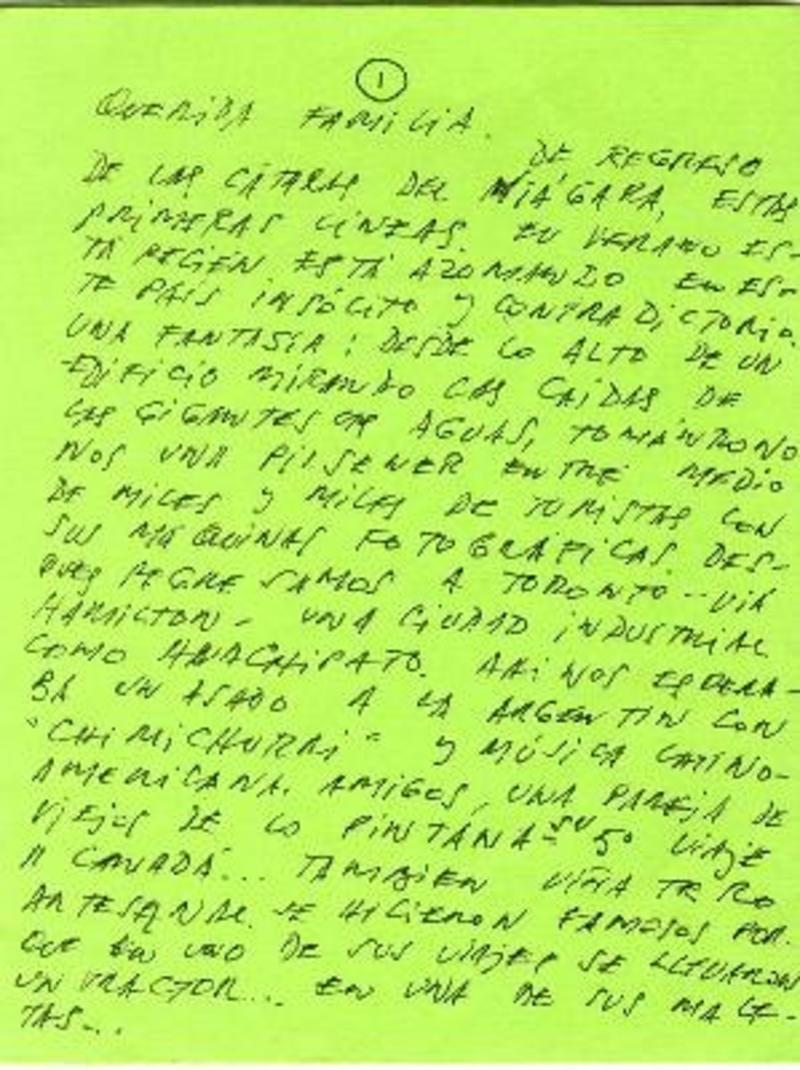 1
QUERIDA FAMILIA.
DE REGRESO
DE LAS CATARAS DEL NIÁGARA, ESTAS
PRIMERAS LÍNEAS. EN VERANO ES-
TÁ RECIEN ESTÁ AZOMANDO EN ES-
TE PAÍS INSÓLITO Y CONTRADICTORIO.
UNA FANTASIA: DESDE LO ALTO DE UN
EDIFICIO MIRANDO LAS CAIDAS DE
LAS GIGANTES DE AGUAS, TOMÁNDONO
NOS UNA PILSENER ENTRE MEDIO
DE MILES Y MILES DE TURISTAS CON
SUS MAQUINAS FOTOGRÁFICAS. DES-
PUES REGRESAMOS A TORONTO -- VIA
HAMILTON - UNA CIUDAD INDUSTRIAL
COMO HUACHIPATO. AHI NOS ESPERA-
BA UN ASADO A LA ARGENTIN CON
"CHIMICHURRI" Y MÚSICA LATINO-
AMERICANA. AMIGOS, UNA PAREJA DE
VIEJOS DE LO PINTANA - SU 5° VIAJE
A CANADÁ... TAMBIEN VIÑATERO
ARTESANAL. SE HICIERON FAMOSOS POR-
QUE EN UNO DE SUS VIAJES SE LLEVARON
UN TRACTOR... EN UNA DE SUS MALE-
TAS...